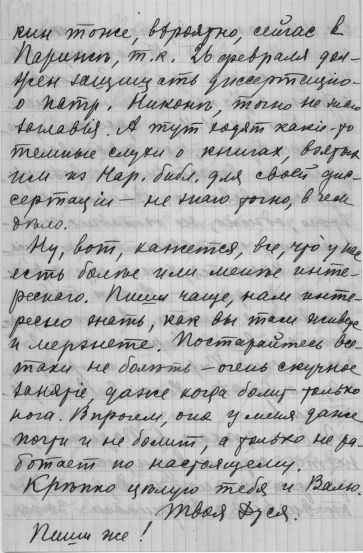 кин тоже, вѣроятно, сейчас в
Париже, т.к. 26 февраля дол-
жен защищать диссертацію
о патр. Никонѣ, точно не знаю
заглавія. А тут ходят какіе-то
темные слухи о книгах, взятых
им из Нар. библ. для своей дис-
сертаціи — не знаю точно, в чем
дѣло.
Ну, вот, кажется, все, что у нас
есть болѣе или менѣе инте-
ресного. Пиши чаще, нам инте-
ресно знать, как вы там живете
и мерзнете. Постарайтесь все-
таки не болѣть — очень скучное
занятіе, даже когда болит только
нога. Впрочем, она у меня даже
почти и не болит, а только не ра-
ботает по настоящему.
Крѣпко цѣлую тебя и Валю.
Твоя Дуся.
Пиши же!